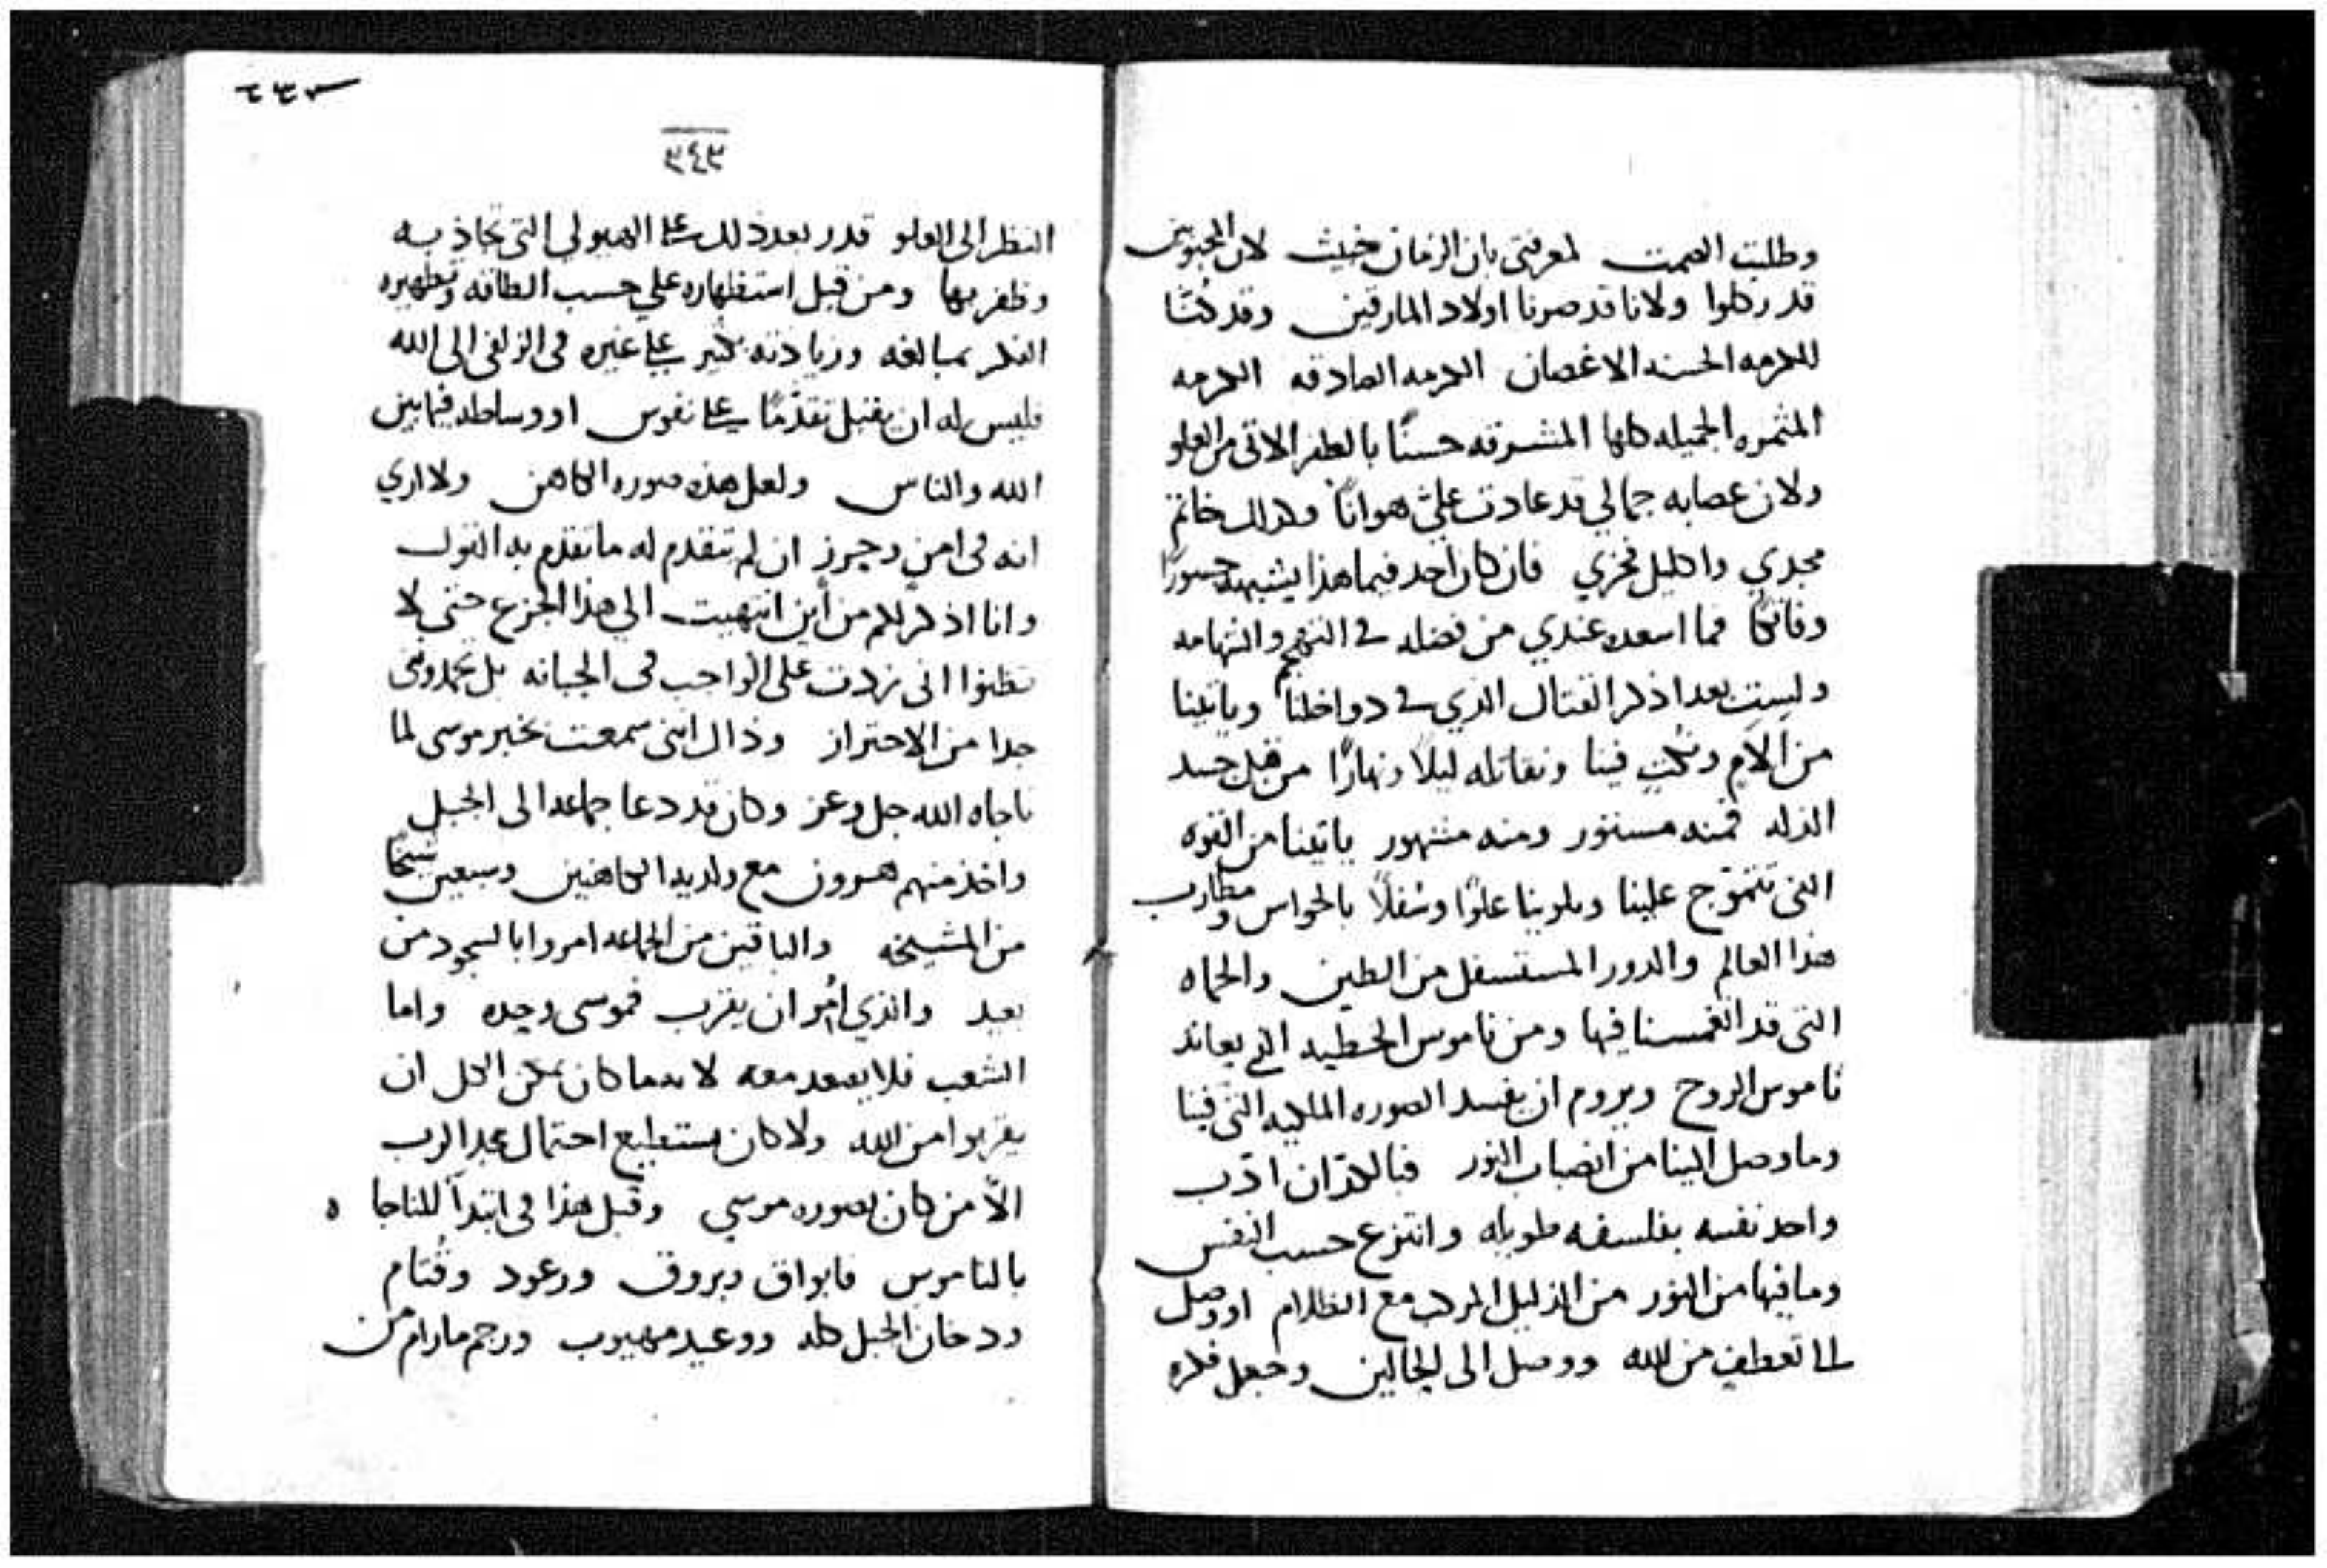 وطلبت الصمت لمعرفتي بان الزمان خبيث لان المحبوبين
قد ركلوا ولانا قد صرنا اولاد المارقين وقد كُنّا
للكرمه الحسنه الاغصان الكرمه الصادقه الكرمه
المثمره الجميله كلها المشرقه حسنًا بالطفر الاتي من العلو
ولان عصابه جمالي قد عادت عليّ هوانًا وكذلك خاتم
مجدي واكليل فخري فان كان احد فيما هذا يشبهه جسورًا
وفاتكًا فما اسعده عندي من فضله في التهجم والشهامه
ولست بعد اذكر القتال الذي في دواخلنا وياتينا
من آلام فينا ونقاتله ليلًا ونهارًا من قبل جسد
الذله فمنه مستور ومنه مشهور ياتينا من القوه
التي تتموّج علينا ويلوينا علوًا وسُفلًا بالحواس ومطارب
هذا العالم والدور المستسفل من الطين والحماه
التي قد انغمسنا فيها ومن ناموس الخطيه الذي يعاند
ناموس الروح ويروم ان يفسد الصوره الملكيه التي فينا
وما وصل الينا من انصباب النور فبالكدّ ان ادّب
واحد نفسه بفلسفه طويله وانتزع حسب النفس
وما فيها من النور من الذليل المركب مع الظلام او وصل
الى تعطف من الله ووصل الى الحالين وجعل فكره
٣٤٣
النظر الى العلو قدر بعد ذلك على الهيولي التي تجاذبه
وظفر بها ومن قبل استظهاره على حسب الطاقه وتطهيره
الفكر بمبالغه وزيادته بكثير على غيره في الزلفى الى الله
فليس له ان يقبل تقدّمًا على نفوس او وساطه فيما بين
الله والناس ولعل هذه صوره الكاهن ولا اري
انه في امن وحرز ان لم تتقدم له ما تقدم به القول
وانا اذكر لكم من أين انتهيت الى هذا الجزع حتى لا
تظنوا اني زدت على الواجب في الجبانه بل تحمدوني
جدا من الاحتراز وذاك انني سمعت بخبر موسى لما
ناجاه الله جل وعز وكان قد دعا جماعه الى الجبل
واخذ منهم هرون مع ولديه الكاهنين وسبعين شيخًا
من المشيخه والباقين من الجماعه امروا بالسجود من
بعيد والذي اُمر ان يقرب فموسى وحده واما
الشعب فلا يصعد معه لانه ما كان يمكن الكل ان
يقربوا من الله ولا كان يستطيع احتمال مجد الرب
الّا من كان بصوره موسي وقبل هذا في ابتدآ المناجاه
بالناموس فابواق وبروق ورعود وقُتام
ودخان الجبل كله ووعيد مهيوب ورجم ما رام من